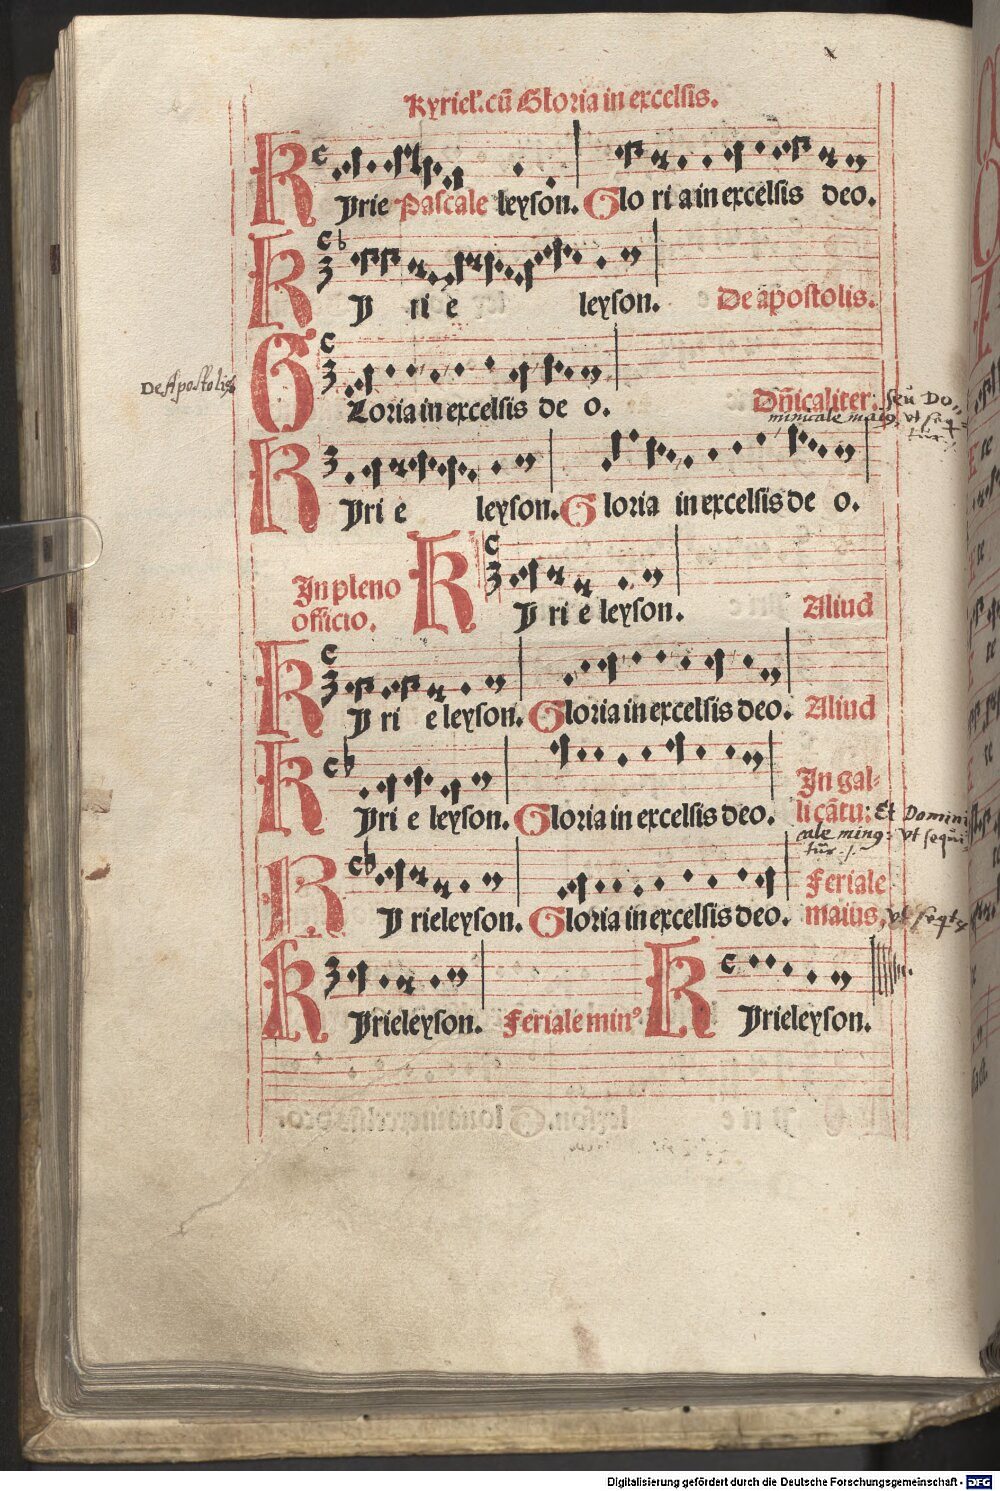 Kyriel'. cū Gloria in excelsis.
Kyrie Pascale leyson. Glo ri a in excelsis deo.
Ky ri e leyson. De apostolis.
De Apostolis
Gloria in excelsis de o. Dn̄icaliter. seu Do
minicale maiꝰ, vt seq
tur.
Kyri e leyson. Gloria in excelsis de o.
In pleno
officio. Ky ri e leyson. Aliud
Ky ri e leyson. Gloria in excelsis deo. Aliud
Kyri e leyson. Gloria in excelsis deo. In gal-
li cātu: Et Domini
cale minꝰ: vt sequi
tur.
Ky rieleyson. Gloria in excelsis deo. Feriale
maius, vt seqt
Kyrieleyson. Feriale minꝰ Kyrieleyson.
Digitalisierung gefördert durch die Deutsche Forschungsgemeinschaft - DFG